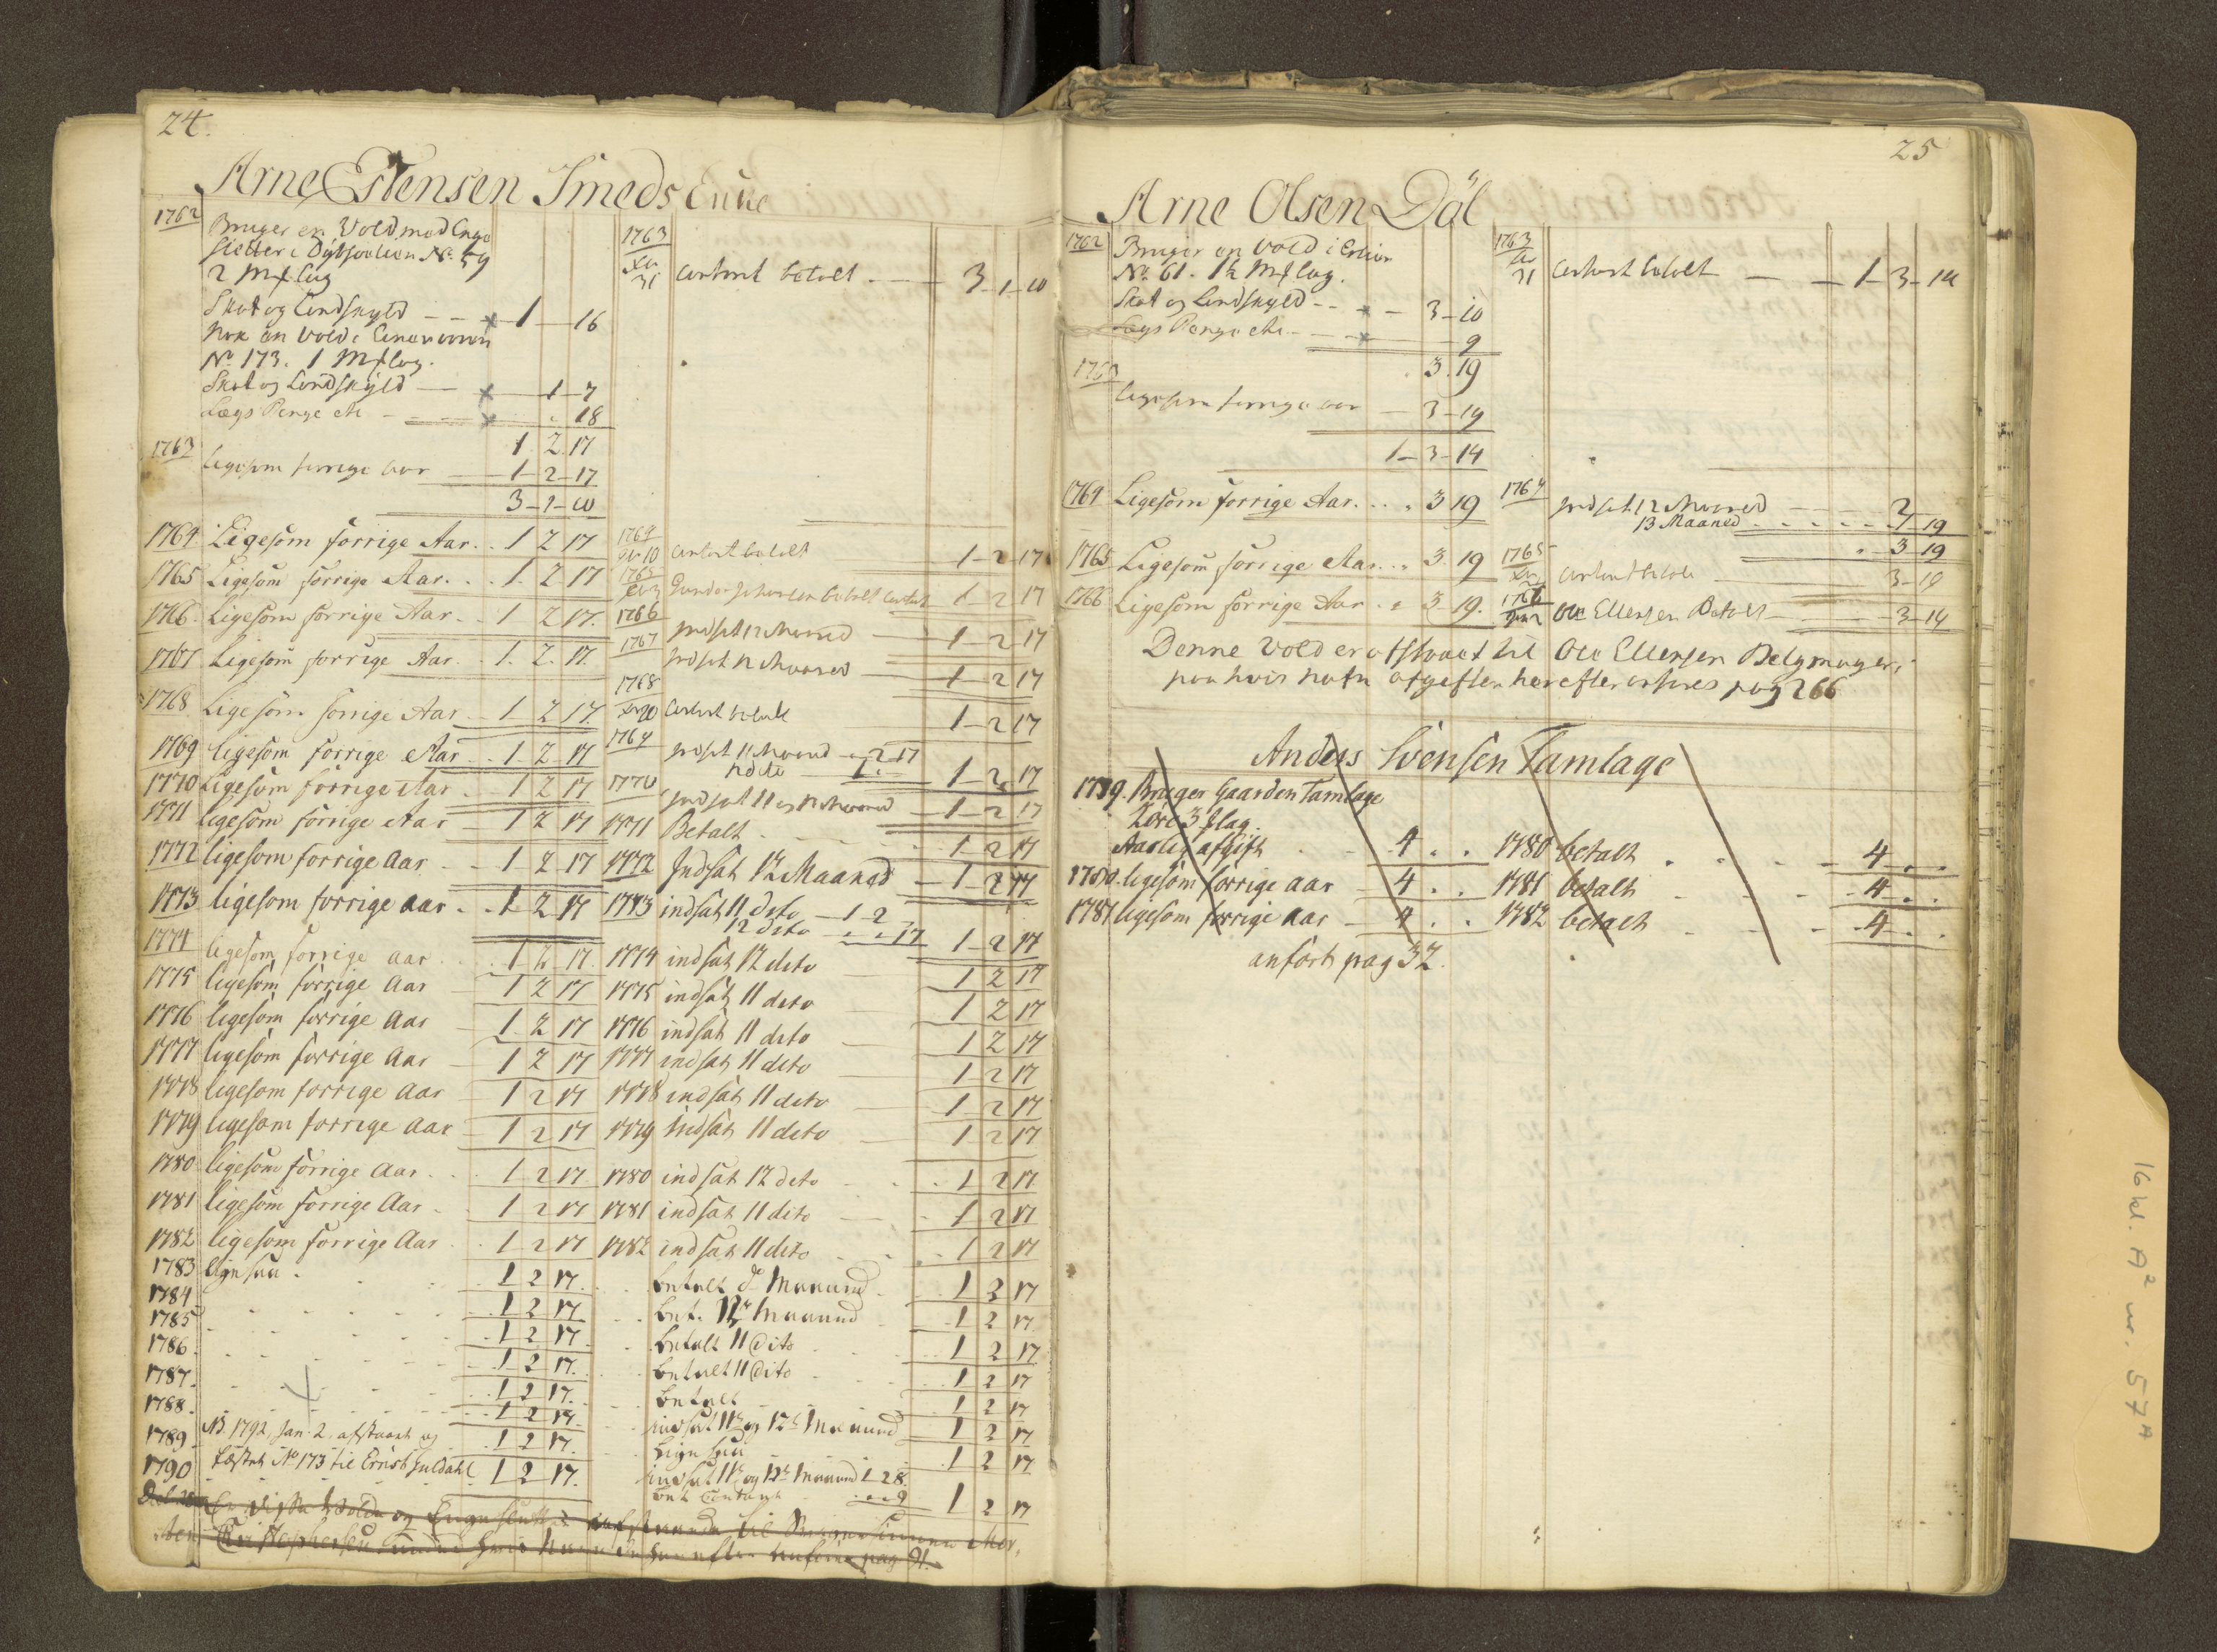 24.
Arne Estensen Smeds Enke
1762 Bruger en Vold med Enge
Sletter i No. 59
2 Mællag
Skat og Landskyld - - x 1 - 16
Nok en Vold i
No. 173. 1 Mællag.
Skat og Landskyld - x - 1 - 7
Lægs Penge etc - x . 18
1 . 2 . 17
1763 Ligesom forrige Aar - 1 - 2 - 17
3 - 1 - 10
1764 Ligesom forrige Aar . . 1 2 17
1765 Ligesom forrige Aar . . 1 . 2 17
1766 Ligesom forrige Aar . . 1 2 17.
1767 Ligesom forrige Aar . . 1 . 2 . 17.
1768 Ligesom forrige Aar - 1 - 2 17.
1769 ligesom forrige Aar . . 1 - 2 - 17
1770 Ligesom forrige Aar - 1 2 17
1771 ligesom forrige Aar - 1 2 17
1772 ligesom forrige Aar - 1 2 17
1773 ligesom forrige aar . . 1 2 17
1774 ligesom forrige aar . . 1 2 17.
1775 ligesom forrige Aar - 1 2 17
1776 ligesom forrige Aar - 1 2 17
1777 ligesom forrige Aar - 1 2 17
1778 ligesom forrige Aar - 1 2 17
1779 ligesom forrige Aar - 1 2 17
1780 ligesom forrige Aar . . 1 2 17
1781 ligesom forrige Aar - 1 2 17
1782 ligesom forrige Aar . . 1 2 17
1783 ligesaa . . 1 2 17.
1784 - - - 1 2 17
1785 - - - 1 2 17
1786 - - - 1 2 17.
1787 - - - 1 2 17.
1788 - - - 1 2 17.
1789 - NB. 1792, Jan. 2, afstaaet og 1 2 17.
1790 fæstet No 173 til Ernst Guldahl 1 2 17.
1763
31 Contant betalt - 3 - 1 - 10
1764
10 Contant betalt 1 - 2 - 17
1765 betalt Contant 1 2 17
1766 Indsat 12 Maaned - 1 - 2 17
1767 Indsat 12 Maaned - 1 - 2 17
1768
20 Contant betalt 1 - 2 17
1769 Indsat 11 Maaned - 2 17
12 dito - 1 . - 1 - 2 - 17
1770 Indsat 11 og 12 Maaned - 1 - 2 17
1771 Betalt - 1 2 17
1772 Indsat 12 Maaned - 1 - 2 17
1773 indsat 11 dito - 1 2 -
12 dito - . . 17 1 - 2 17
1774 indsat 12 dito 1 2 17
1775 indsat 11 dito 1 2 17
1776 indsat 11 dito 1 2 17
1777 indsat 11 dito 1 2 17
1778 indsat 11 dito 1 2 17
1779 indsat 11 dito 1 2 17
1780 indsat 12 dito 1 2 17
1781 indsat 11 dito 1 2 17
1782 indsat 11 dito 1 2 17
betalt Maaned 1 2 17
bet. 12 Maaned 1 2 17
betalt 11 Dito 1 2 17
betalt 11 Dito 1 2 17
betalt 1 2 17
indsat 11 og 12 Maaned 1 2 17
ligesaa 1 2 17
indsat 11 og 12 Maaned 1 2 8.
bet Contant . . . 9 1 2 17
25
Arne Olsen Döl
1762 Bruger en Vold i
No. 61. 1½ Mællag.
Skat og Landskyld - - x - 3 - 10
Lægs Penge etc - x - 9
3 . 19
1763 Ligesom forrige aar - 3 - 19
1 - 3 - 14
1764 Ligesom forrige Aar . . . 3 19
1765 Ligesom forrige Aar . . . 3 . 19
1766 Ligesom forrige Aar . . 3 19.
1763
31 Contant betalt - 1 - 3 - 14
1764 Indsat 12 Maaned - 2
13 Maaned . . . . 1 19
. 3 19
1765 Contant betalt 3 - 19
1766 Ole Ellensen Betalt - 3 - 14
Denne Vold er afstaaet til Ole Ellensen Belgmager,
paa hvis Nafn afgiften herefter anføres pag 266
Anders Svensen Tamlage
1779. Bruger Gaarden Tamlage
Aarlig afgift . . 4 . . 1780 betalt . . . - 4 . .
1780. ligesom forrige aar - 4 . . 1781 betalt - 4 . .
1781 ligesom forrige aar - 4 . . 1782 betalt - 4 . .
anført pag 32.
16 kl. A² nr. 57ᴬ